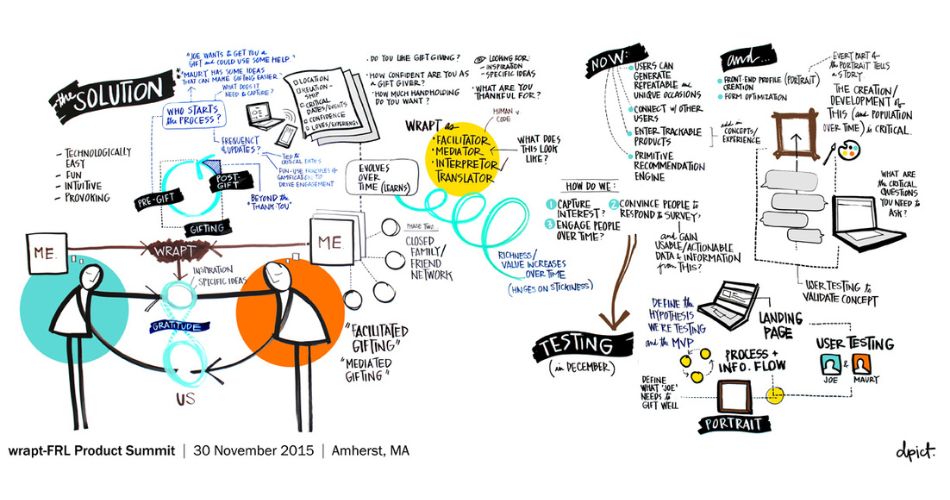 the SOLUTION
- TECHNOLOGICALLY
EASY
- FUN
- INTUITIVE
- PROVOKING
"JOE WANTS to GET YOU a
GIFT and COULD USE SOME HELP."
"MAURY HAS SOME IDEAS
THAT CAN MAKE GIFTING EASIER."
WHAT DOES IT
NEED to CAPTURE?
WHO STARTS
the PROCESS?
FREQUENCY
of UPDATES?
FUN-USE PRINCIPLES of
GAMIFICATION TO
DRIVE ENGAGEMENT
PRE-GIFT
POST-
GIFT
GIFTING
BEYOND the
"THANK YOU"
LOCATION
RELATION-
SHIP
CRITICAL
DATES/EVENTS
CONFIDENCE
EVOLVES
OVER
TIME (LEARNS)
· DO YOU LIKE GIFT GIVING?
· HOW CONFIDENT ARE YOU AS
a GIFT GIVER?
· HOW MUCH HANDHOLDING
DO YOU WANT?
LOOKING FOR:
- INSPIRATION
- SPECIFIC IDEAS
· WHAT ARE YOU
THANKFUL FOR?
WRAPT as
· FACILITATOR
· MEDIATOR
· INTERPRETOR/
TRANSLATOR
HUMAN
v. CODE
WHAT DOES
THIS LOOK
LIKE?
ME
WRAPT
ME
INSPIRATION
SPECIFIC IDEAS
GRATITUDE
US
PHASE TWO:
CLOSED
FAMILY/
FRIEND
NETWORK
"FACILITATED
GIFTING"
"MEDIATED
GIFTING"
RICHNESS/
VALUE INCREASES
OVER TIME
(HINGES ON STICKINESS)
HOW DO WE:
1 CAPTURE
INTEREST?
2 CONVINCE PEOPLE to
RESPOND to SURVEY?
3 ENGAGE PEOPLE
OVER TIME?
and GAIN
USABLE/ACTIONABLE
DATA & INFORMATION
from THIS?
NOW:
USERS CAN
GENERATE
REPEATABLE and
UNIQUE OCCASIONS
CONNECT w/ OTHER
USERS
ENTER TRACKABLE
PRODUCTS
PRIMITIVE
RECOMMENDATION
ENGINE
add in
CONCEPTS/
EXPERIENCE
and...
FRONT-END PROFILE (PORTRAIT)
CREATION
FORM OPTIMIZATION
EVERY PART of
the PORTRAIT TELLS
a STORY
THE CREATION/
DEVELOPMENT of
THIS (and POPULATION
OVER TIME) is CRITICAL.
WHAT ARE
the CRITICAL
QUESTIONS
YOU NEED to
ASK?
USER TESTING to
VALIDATE CONCEPT
TESTING
(in DECEMBER)
DEFINE the
HYPOTHESIS
WE'RE TESTING
and the MVP
LANDING
PAGE
PROCESS +
INFO. FLOW
USER TESTING
JOE
&
MAURY
DEFINE
WHAT 'JOE'
NEEDS to
GIFT WELL
PORTRAIT
wrapt-FRL Product Summit | 30 November 2015 | Amherst, MA
dpict.